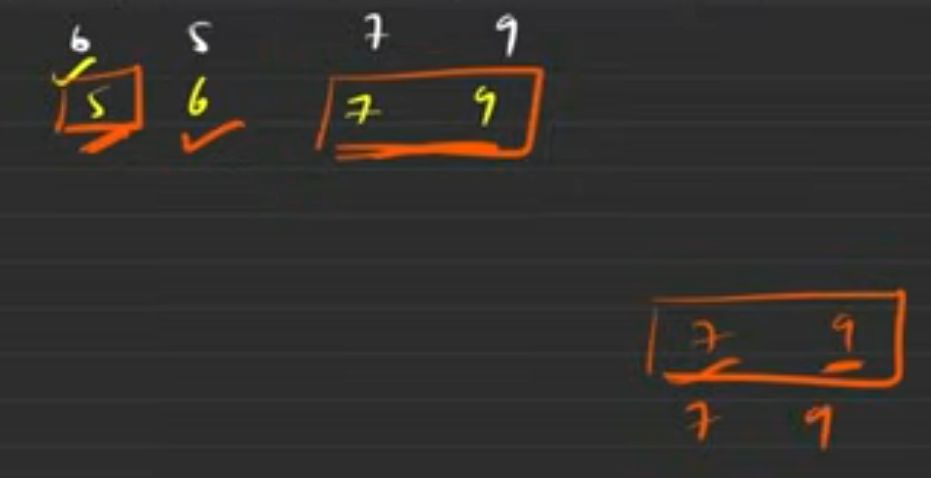 6 5 7 9
5 6 7 9
7 9
7 9